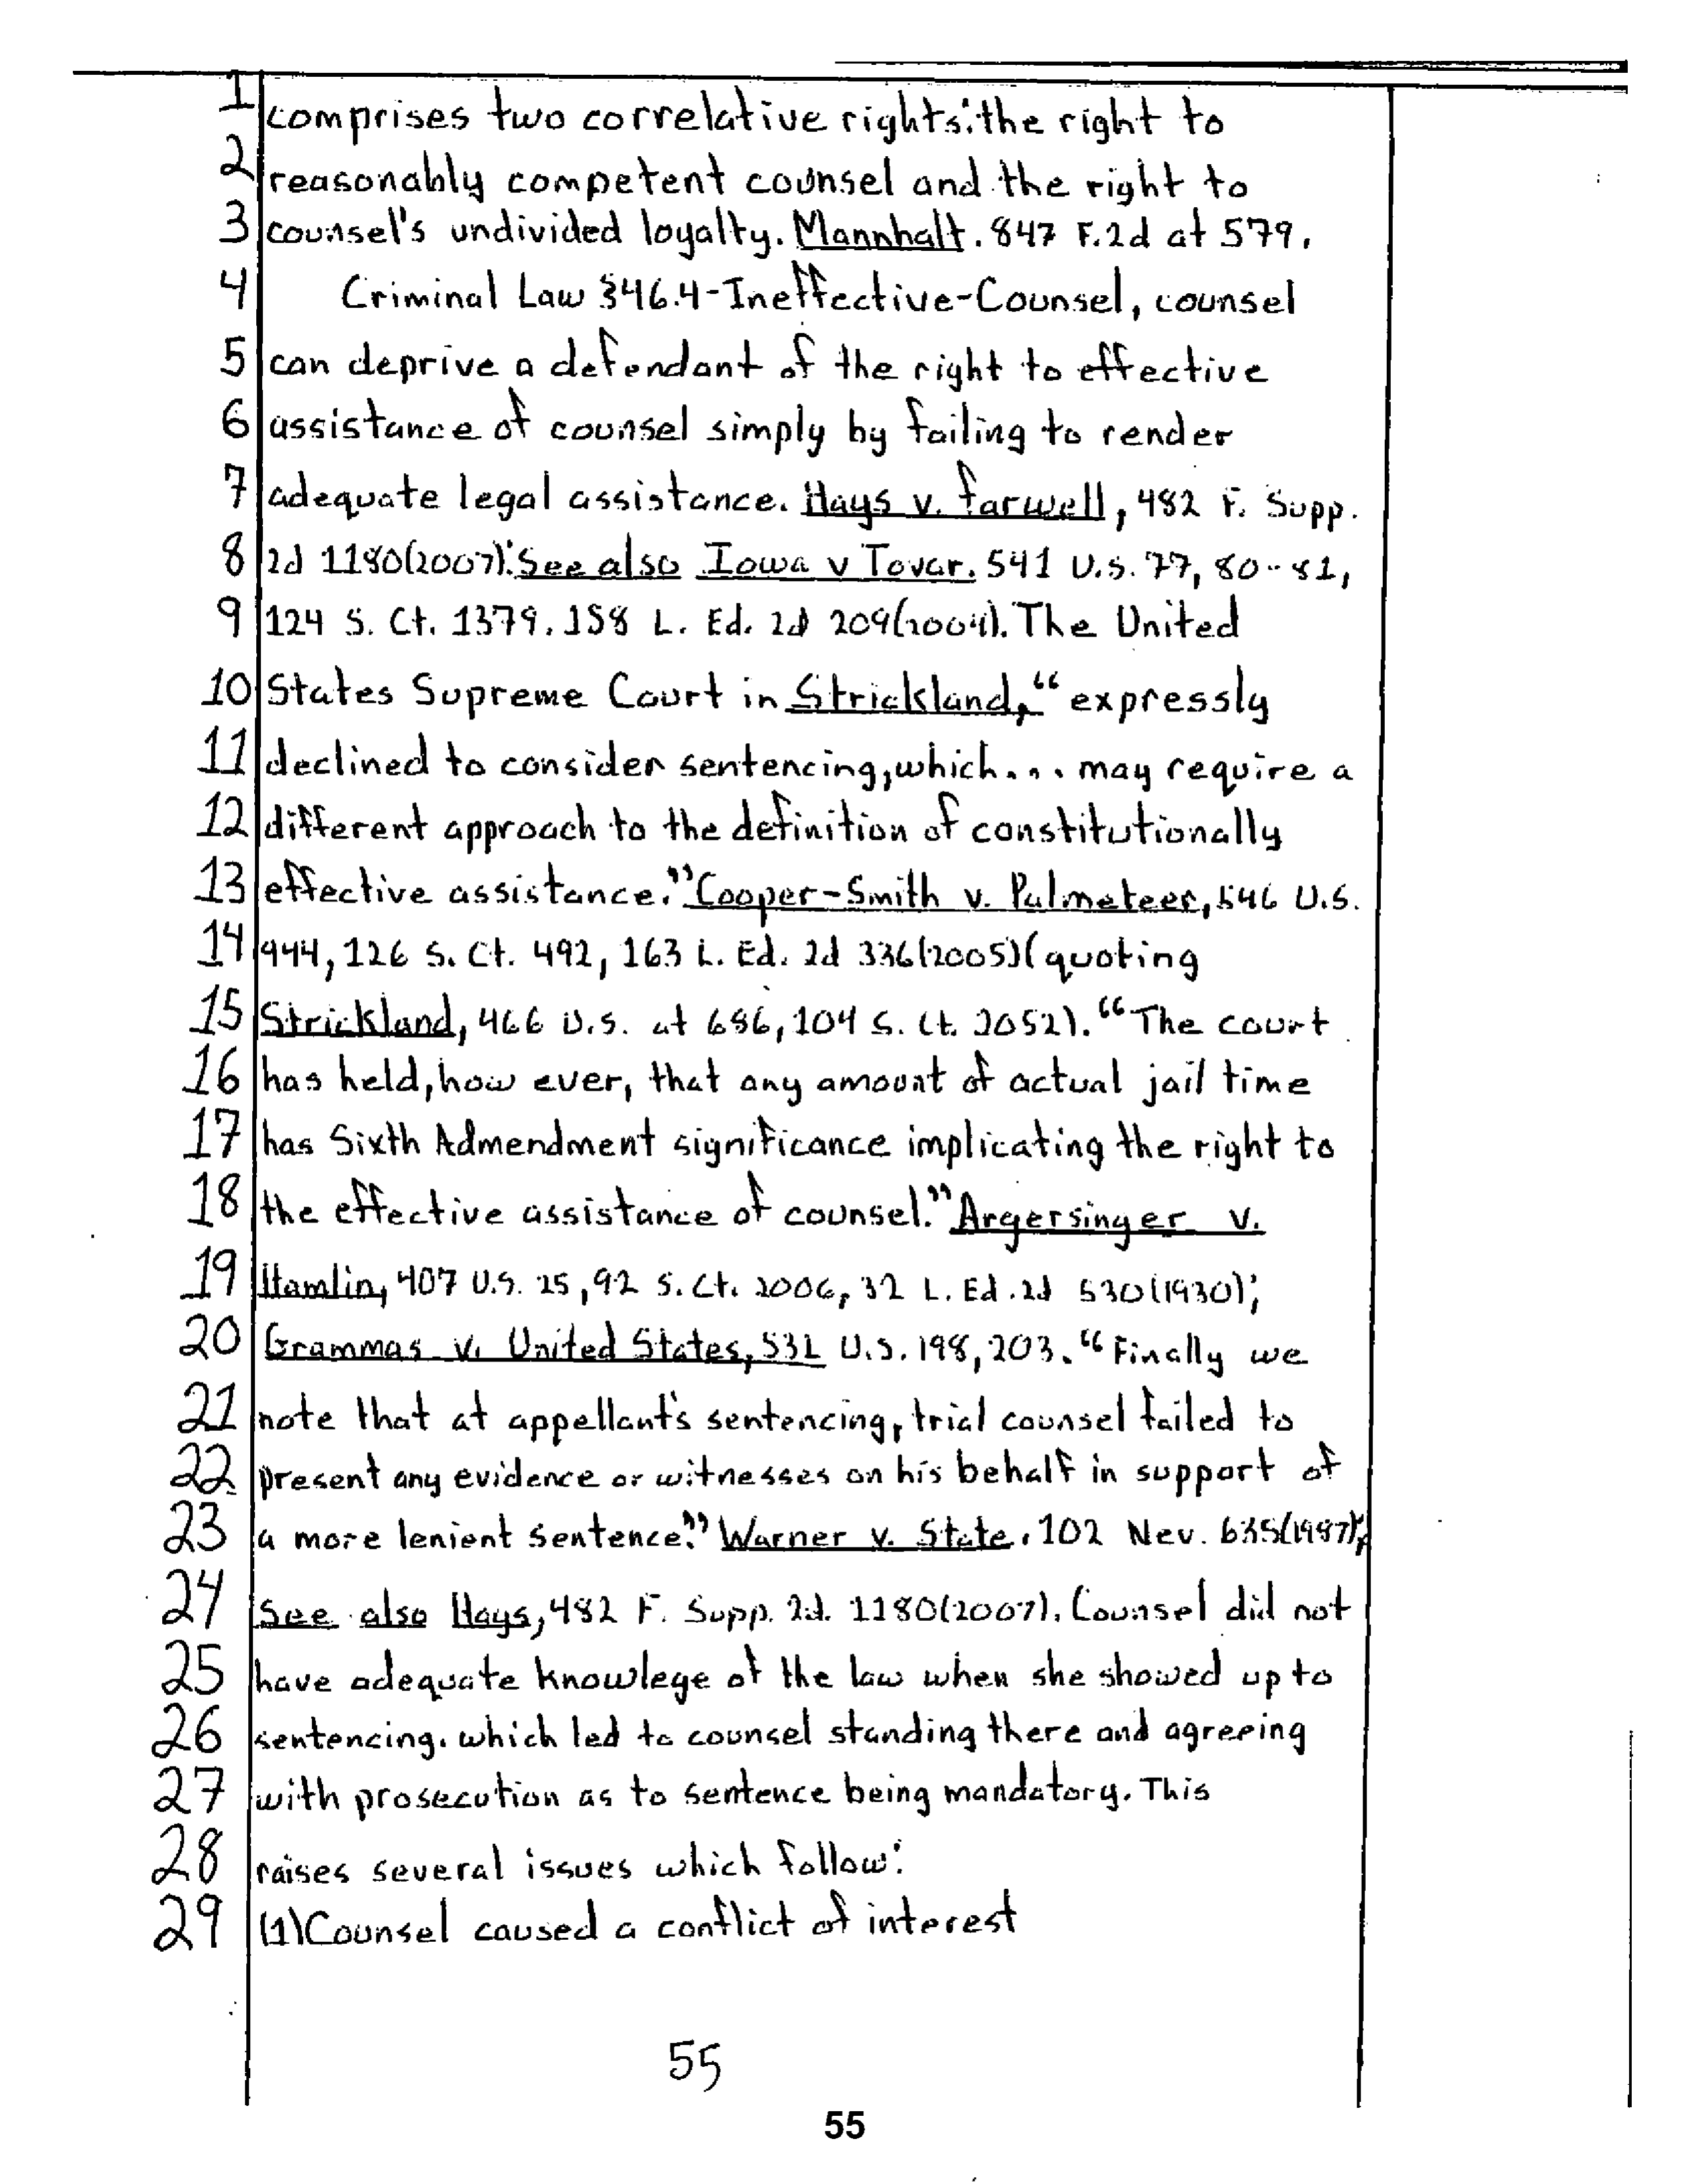 1 comprises two correlative rights: the right to
2 reasonably competent counsel and the right to
3 counsel's undivided loyalty. Mannhalt. 847 F.2d at 579.
4 Criminal Law §46.4-Ineffective-Counsel, counsel
5 can deprive a defendant of the right to effective
6 assistance of counsel simply by failing to render
7 adequate legal assistance. Hays v. farwell, 482 F. Supp.
8 2d 1180(2007); See also Iowa v Tovar. 541 U.S. 77, 80-81,
9 124 S. Ct. 1379. 158 L. Ed. 2d 209(2004). The United
10 States Supreme Court in Strickland, "expressly
11 declined to consider sentencing, which... may require a
12 different approach to the definition of constitutionally
13 effective assistance." Cooper-Smith v. Palmeteer, 546 U.S.
14 944, 126 S. Ct. 492, 163 L. Ed. 2d 336(2005)(quoting
15 Strickland, 466 U.S. at 686, 104 S. Ct. 2052). "The court
16 has held, how ever, that any amount of actual jail time
17 has Sixth Admendment significance implicating the right to
18 the effective assistance of counsel." Argersinger v.
19 Hamlin, 407 U.S. 25, 92 S. Ct. 2006, 32 L. Ed. 2d 530(1930);
20 Grammas v. United States, 531 U.S. 198, 203. "Finally we
21 note that at appellant's sentencing, trial counsel failed to
22 present any evidence or witnesses on his behalf in support of
23 a more lenient sentence." Warner v. State. 102 Nev. 635(1987);
24 See also Hays, 482 F. Supp. 2d. 1180(2007). Counsel did not
25 have adequate knowlege of the law when she showed up to
26 sentencing. which led to counsel standing there and agreeing
27 with prosecution as to sentence being mandatory. This
28 raises several issues which follow:
29 (1) Counsel caused a conflict of interest
55
55